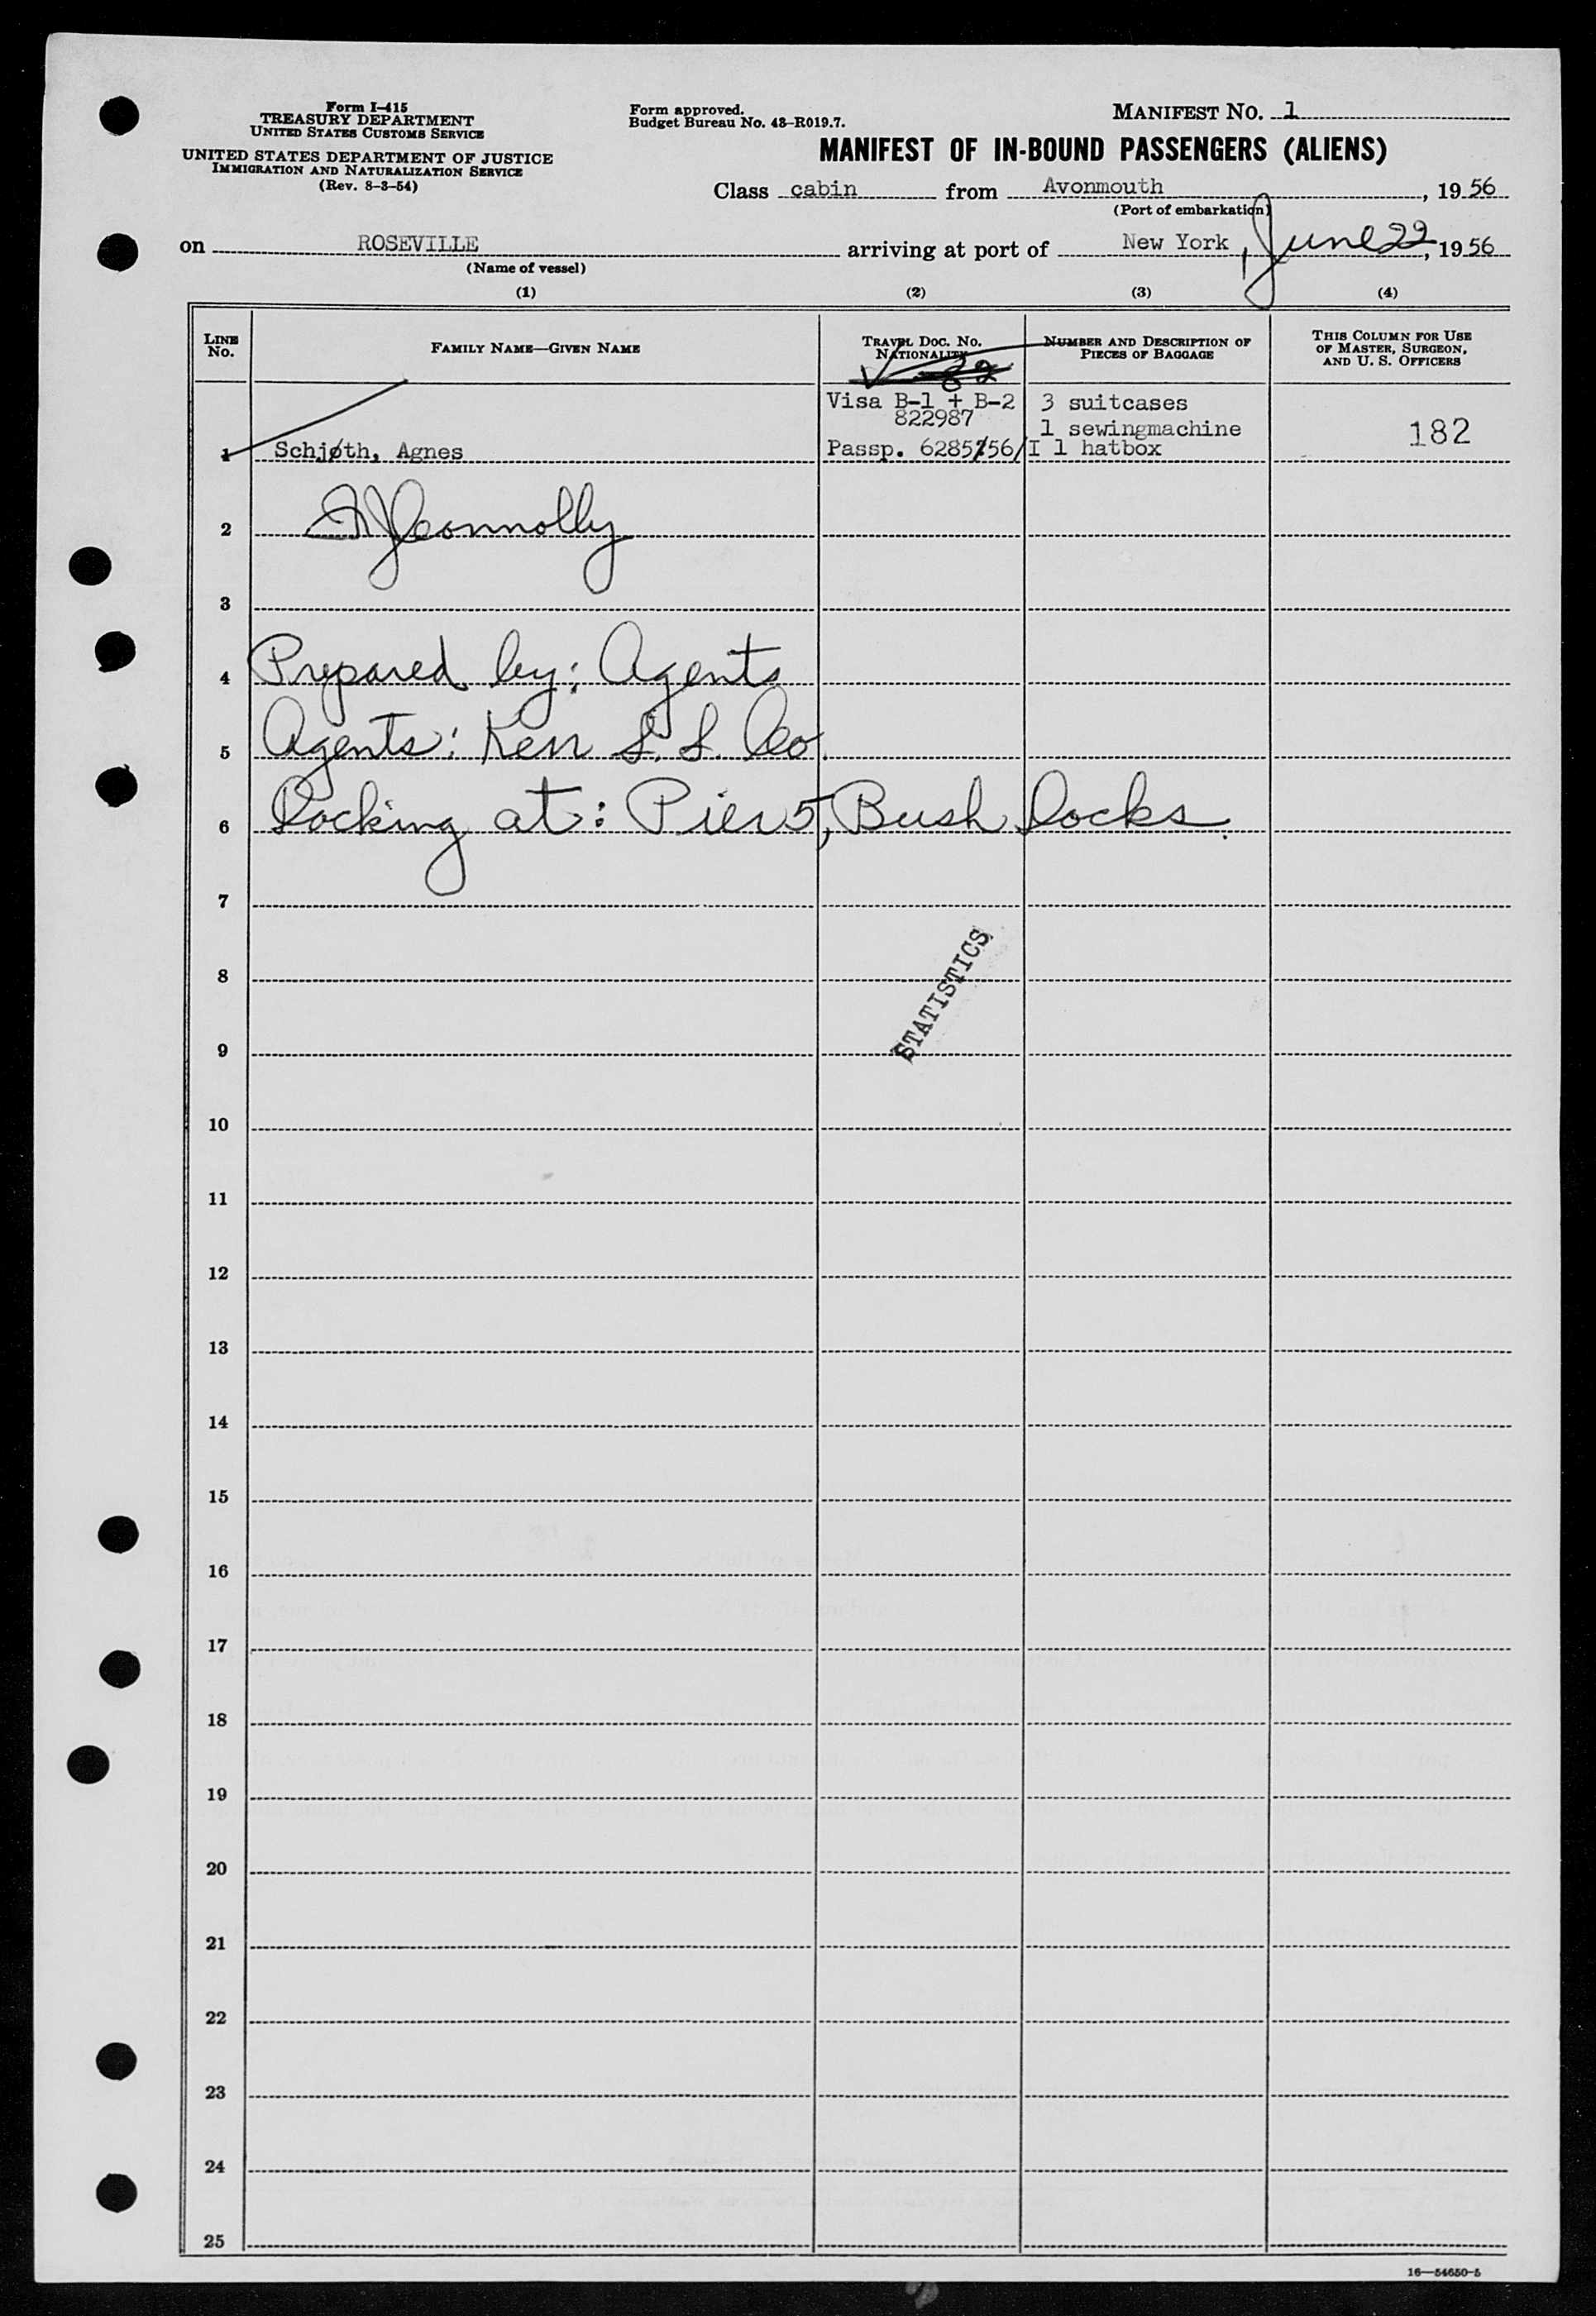 Form I-415
TREASURY DEPARTMENT
UNITED STATES CUSTOMS SERVICE
UNITED STATES DEPARTMENT OF JUSTICE
IMMIGRATION AND NATURALIZATION SERVICE
(Rev. 8-3-54)
Form approved.
Budget Bureau No. 43-R019.7.
MANIFEST NO. 1
MANIFEST OF IN-BOUND PASSENGERS (ALIENS)
Class cabin from Avonmouth, 19 56
(Port of embarkation)
on ROSEVILLE arriving at port of New York, June 22, 19 56
(Name of vessel)
(1) (2) (3) (4)
LINE No. FAMILY NAME—GIVEN NAME TRAVEL DOC. NO. NATIONALITY NUMBER AND DESCRIPTION OF PIECES OF BAGGAGE THIS COLUMN FOR USE OF MASTER, SURGEON, AND U. S. OFFICERS
Visa B-1 + B-2 3 suitcases
822987 1 sewingmachine 182
1 Schjøth, Agnes Passp. 6285/56/I 1 hatbox
2 Connolly
3
4 Prepared by: Agents
5 Agents: Kerr S. S. Co.
6 Docking at: Pier 5, Bush Docks.
7
8
STATISTICS
9
10
11
12
13
14
15
16
17
18
19
20
21
22
23
24
25
16—54650-5